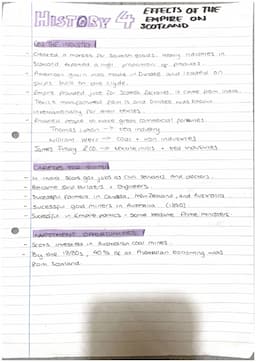 HISTORY 4
EFFECTS OF THE
EMPIRE ON
SCOTLAND
INDUSTRY
- Created a market for Scottish goods. Heavy industries in
Scotland exported a high proportion of products.
- American grain was made in Dundee and loaded on
ships built on the Clyde.
- Empire provided jute for Scottish factories. It came from India.
manufactured jute in and Dundee was known
internationally for their textiles.
- Allowed people to make great commercial fortunes.
Thomas Lipton → tea industry
William Weir → coal + iron industries
James Finlay & Co → textile mills + tea industries
CAREERS FOR SCOTS
- In India Scots got jobs as civil servants and doctors.
- Became scientists + engineers.
- Successful farmers in Canada, New Zealand, and Australia
- Sucessful gold miners in Australia. (1850)
- Sucessful in Empire politics - some became Prime Ministers
INVESTMENT OPPORTUNITIES
- Scots invested in Australian coal mines.
- By the 1880s, 40% of all Australian borrowing was
from Scotland